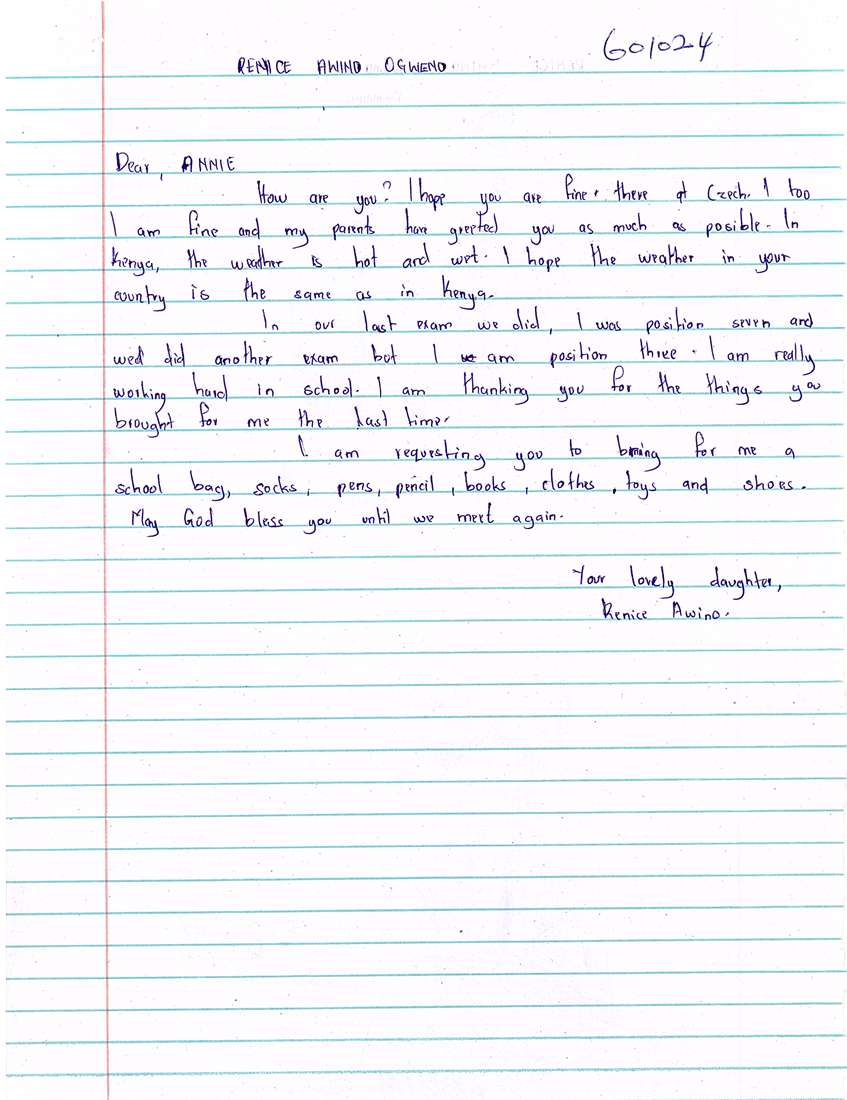 601024
RENICE AWINO. OGWENO.
Dear, ANNIE
How are you? I hope you are fine. there at Czech. I too
I am fine and my parents have greeted you as much as posible. In
Kenya, the weather is hot and wet. I hope the weather in your
country is the same as in Kenya.
In our last exam we did, I was position seven and
wed did another exam but I we am position three. I am really
working hard in school. I am thanking you for the things you
brought for me the last time.
I am requesting you to bring for me a
school bag, socks, pens, pencil, books, clothes, toys and shoes.
May God bless you until we meet again.
Your lovely daughter,
Renice Awino.